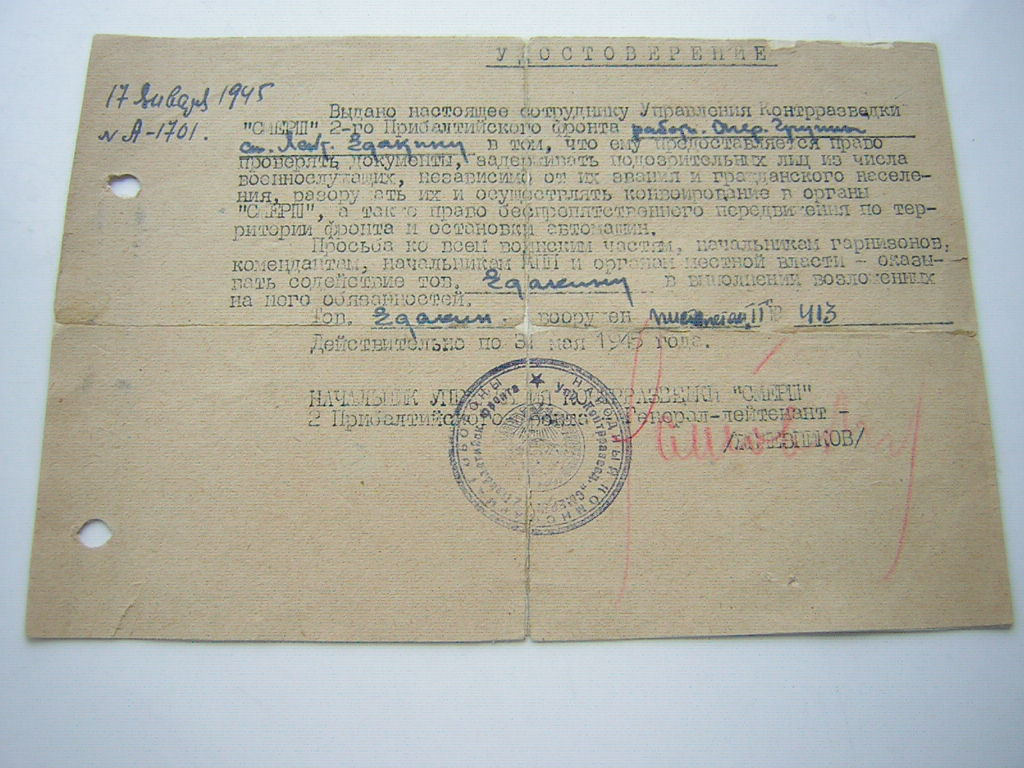 УДОСТОВЕРЕНИЕ
17 Января 1945
№ А-1701.
Выдано настоящее сотруднику Управления Контрразведки
"СМЕРШ" 2-го Прибалтийского фронта работ. Опер. Группы
ст. Лейт. Едакину в том, что ему предоставляется право
проверять документы, задерживать подозрительных лиц из числа
военнослужащих, независимо от их звания и гражданского населе-
ния, разоружать их и осуществлять конвоирование в органы
"СМЕРШ", а также право беспрепятственного передвижения по тер-
ритории фронта и остановки автомашин.
Просьба ко всем воинским частям, начальникам гарнизонов,
комендантам, начальникам КПП и органам местной власти - оказы-
вать содействие тов. Едакину в выполнении возложенных
на него обязанностей.
Тов. Едакин вооружен пистолетом ТТ № 413
Действительно по 31 мая 1945 года.
НАЧАЛЬНИК УПРАВЛЕНИЯ КОНТРРАЗВЕДКИ "СМЕРШ"
2 Прибалтийского фронта Генерал-лейтенант -
НАРОДНЫЙ КОМИССАРИАТ ОБОРОНЫ
Упр. Контрразвед. "СМЕРШ" 2 Прибалтийск. фронта